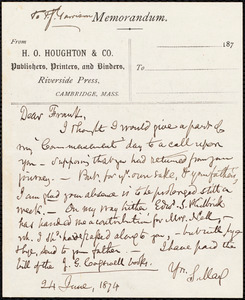 To F. J. Garrison
Memorandum.
FROM
H. O. HOUGHTON & CO.
Publishers, Printers, and Binders,
Riverside Press,
CAMBRIDGE, MASS.
To
187
Dear Frank,
I thought I would give a part of
my "Commencement" day to a call upon
you – supposing that you had returned from your
journey. – But, for yr. own sake, & yr. father's,
I am glad your absence is to be prolonged still a
week. – On my way hither Edw.
has handed me a contribution for Mrs.
wh. I shd. have passed along to you, by
to your father. I have paid the
bill of the works.
Yrs.
S. May
24 June, 1874